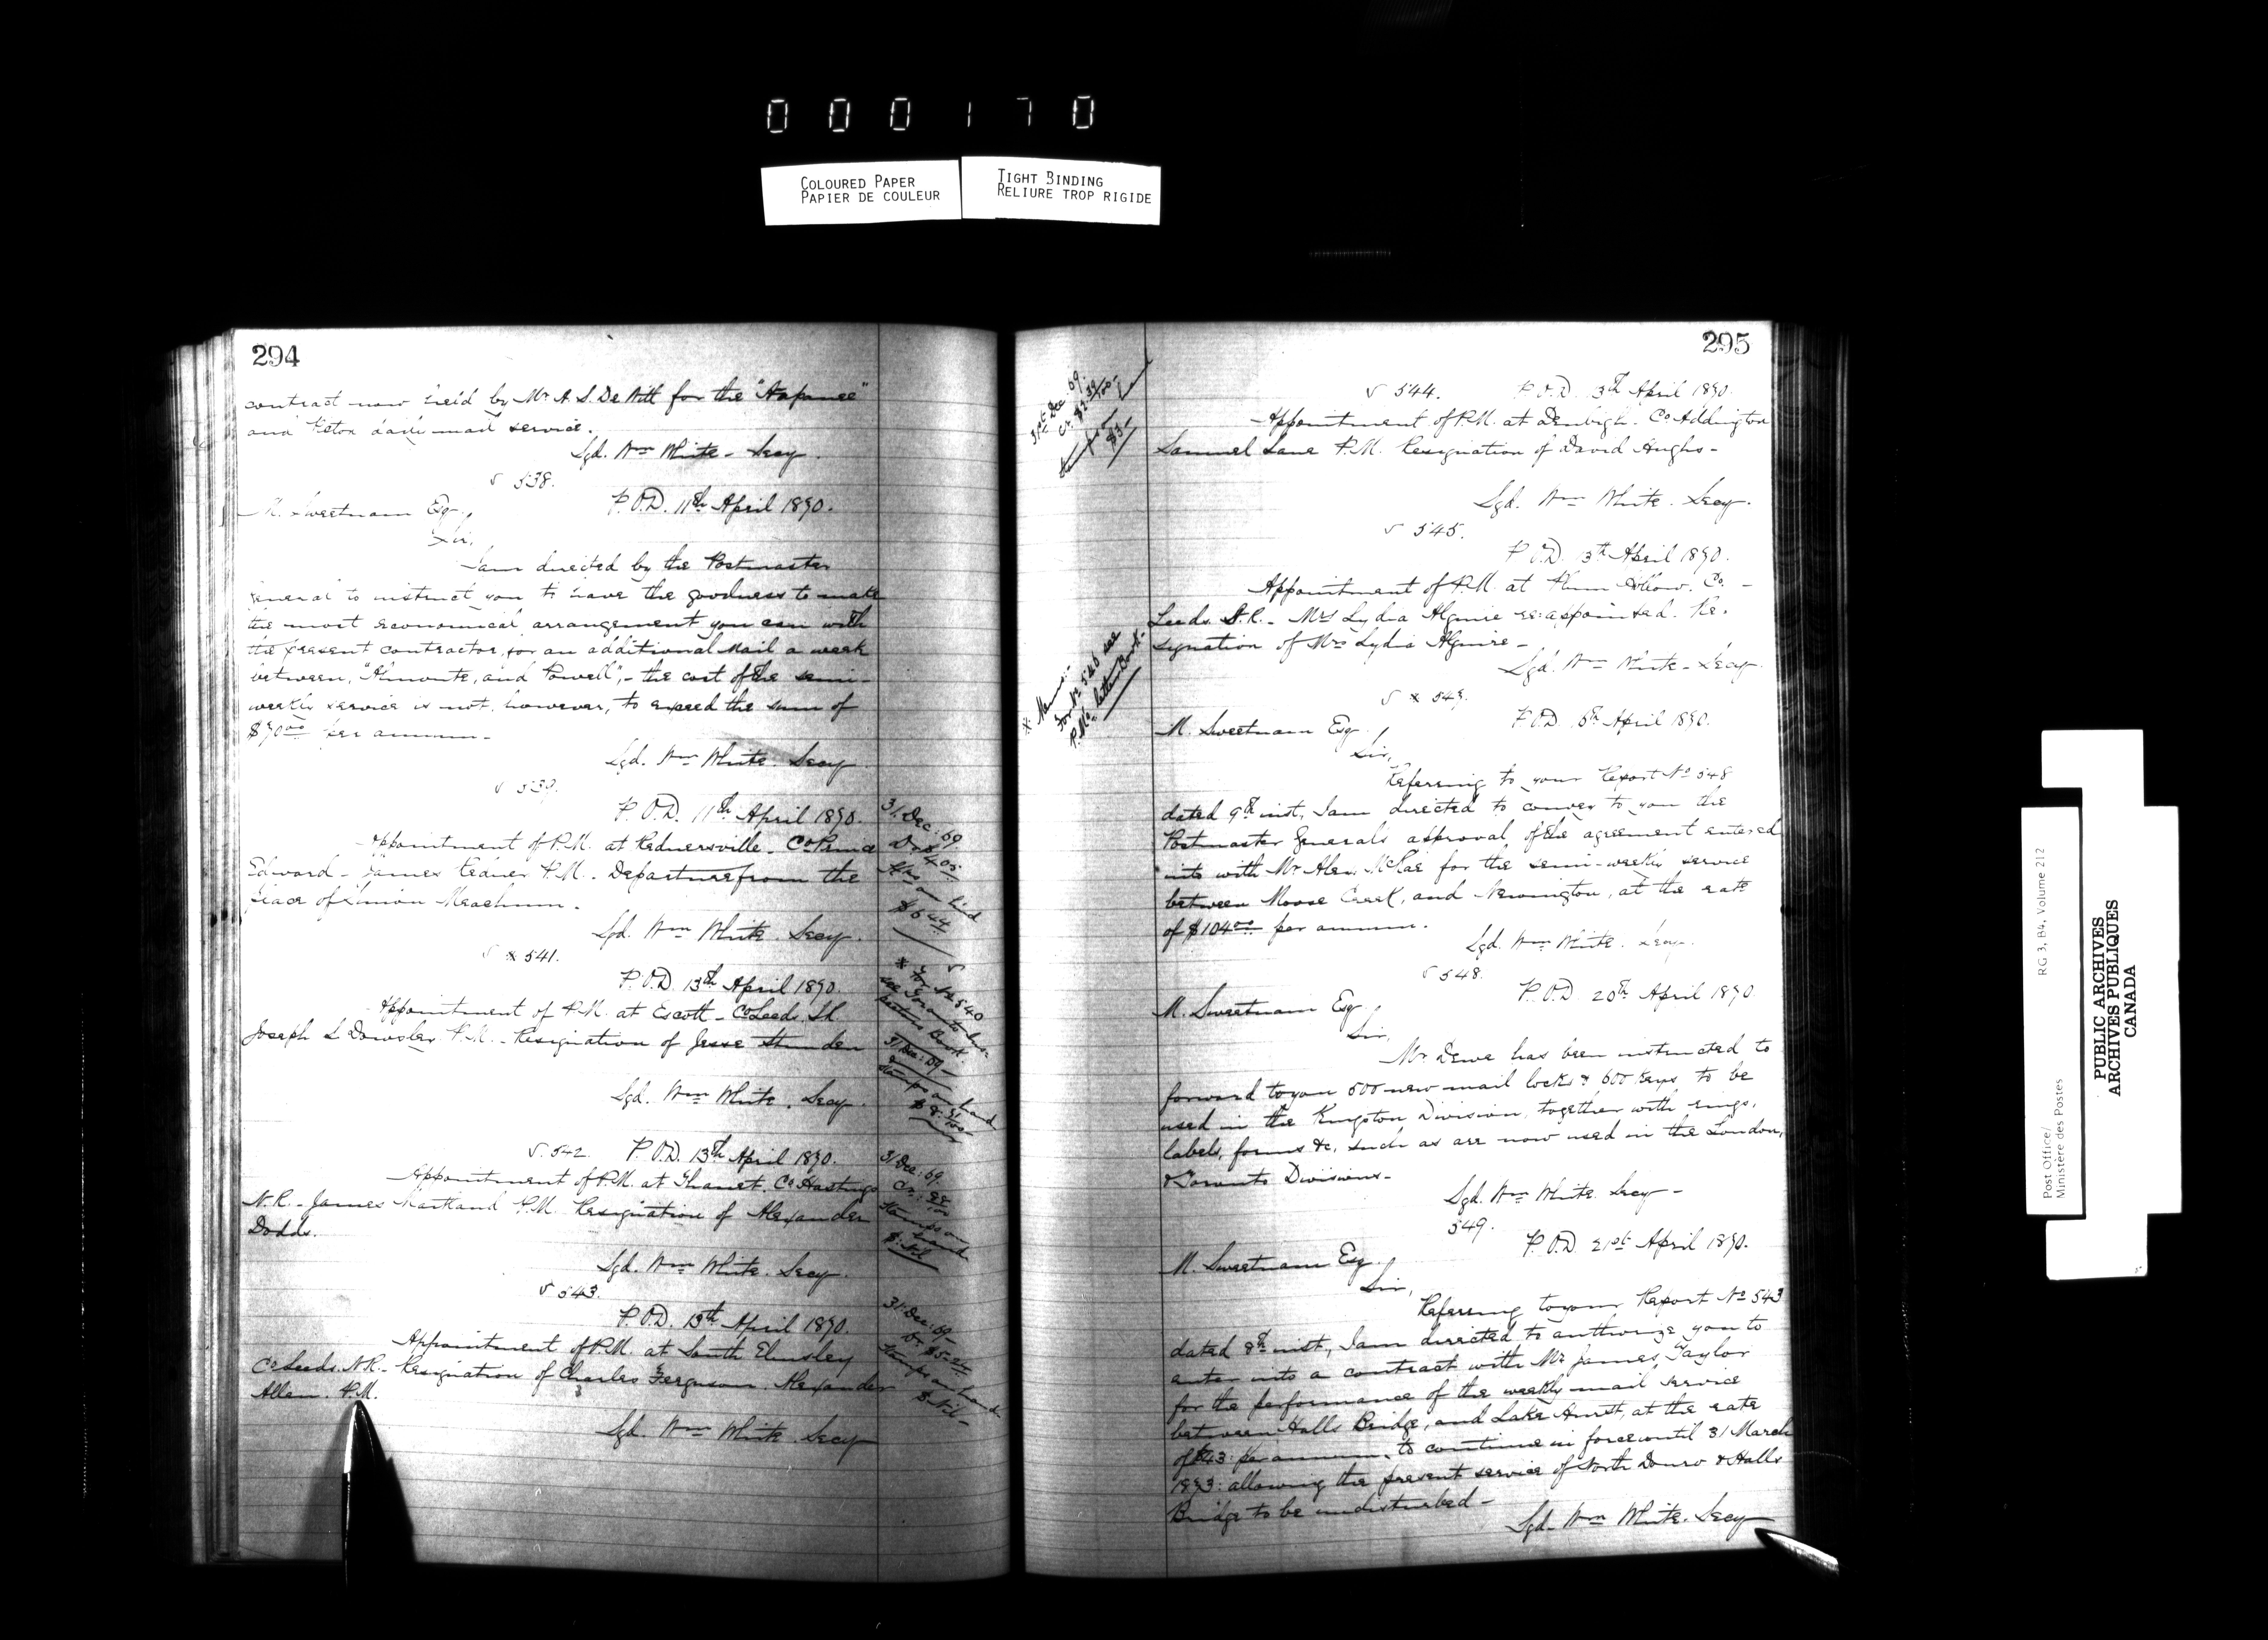 0 0 0 1 7 0
COLOURED PAPER
PAPIER DE COULEUR
TIGHT BINDING
RELIURE TROP RIGIDE
294
contract now held by Mr A. S. De Witt for the "Napanee"
and daily mail service.
Sgd. Wm White - Secy.
538.
P.O.D. 11th April 1870.
M. Sweetnam Esq.
Sir,
I am directed by the Postmaster
General to instruct you to have the goodness to make
the most economical arrangement you can with
the present contractor, for an additional Mail a week
between, "Almonte, and Powell", - the cost of the semi-
weekly service is not, however, to exceed the sum of
$70 00 per annum -
Sgd. Wm White. Secy
539.
P.O.D. 11th April 1870.
Appointment of P.M. at Rednersville - Co Prince
Edward - James Redner P.M. - Departure from the
place of Simion Meachum.
Sgd. Wm White. Secy.
x 541.
P.O.D. 13th April 1870.
Appointment of P.M. at Escott - Co Leeds.
Joseph L Dowsley P.M. - Resignation of Jesse
Sgd. Wm White. Secy.
542. P.O.D. 13th April 1870.
Appointment of P.M. at Thanet. Co Hastings
N.R. - James P.M. Resignation of Alexander
Dodds.
Sgd. Wm White. Secy.
543.
P.O.D. 13th April 1870.
Appointment of P.M. at South Elmsley
Co Leeds. N.R. - Resignation of Charles Ferguson. Alexander
Allen. P.M.
Sgd. Wm White. Secy
31. Dec: 69
on hand
$6 44
x For No 540
see Toronto
Letter Book
31 Dec: 69 -
Stamps on hand
31 Dec: 69.
Cr.
Stamps on
hand
$: Nil
31: Dec: 69 -
Dr. $5.
Stamps on hand
$ Nil -
295
31st Dec: 69.
Cr. $2.
Stamps on hand
$3 -
544. P.O.D. 13th April 1870.
Appointment of P.M. at Denbigh. Co Addington
Samuel Lane P.M. Resignation of David Hughs -
Sgd. Wm White. Secy.
545.
P.O.D. 13th April 1870.
Appointment of P.M. at Plum Hollow. Co. -
Leeds. S.R. - Mrs Lydia Algire re:appointed. Re-
signation of Mrs Lydia Algire -
Sgd. Wm White - Secy.
* Memo: -
For No 546 see
P.M.G. Letter Book -
x 547.
P.O.D. April 1870.
M. Sweetnam Esq
Sir,
Referring to your Report No 548
dated 9th inst, I am directed to convey to you the
Postmaster Generals approval of the agreement entered
into with Mr Alex. McRae for the semi-weekly service
between Moose Creek, and Newington, at the rate
of $104 00 per annum.
Sgd. Wm White. Secy.
548.
P.O.D. 20th April 1870.
M. Sweetnam Esq
Sir,
Mr Dewe has been instructed to
forward to you 500 new mail locks & 600 Keys, to be
used in the Kingston Division, together with rings,
labels, forms &c, such as are now used in the London,
& Toronto Divisions -
Sgd. Wm White. Secy -
549.
P.O.D. 21st April 1870.
M. Sweetnam Esq.
Sir,
Referring to your Report No 543
dated 8th inst, I am directed to authorize you to
enter into a contract with Mr James Taylor
for the performance of the weekly mail service
between Halls Bridge, and Lake Hurst, at the rate
of $43: per annum, to continue in force until 31 March
1873: allowing the present service of North Douro & Halls
Bridge to be undisturbed -
Sgd. Wm White. Secy
Post Office/
Ministère des Postes
RG 3, B4, Volume 212
PUBLIC ARCHIVES
ARCHIVES PUBLIQUES
CANADA